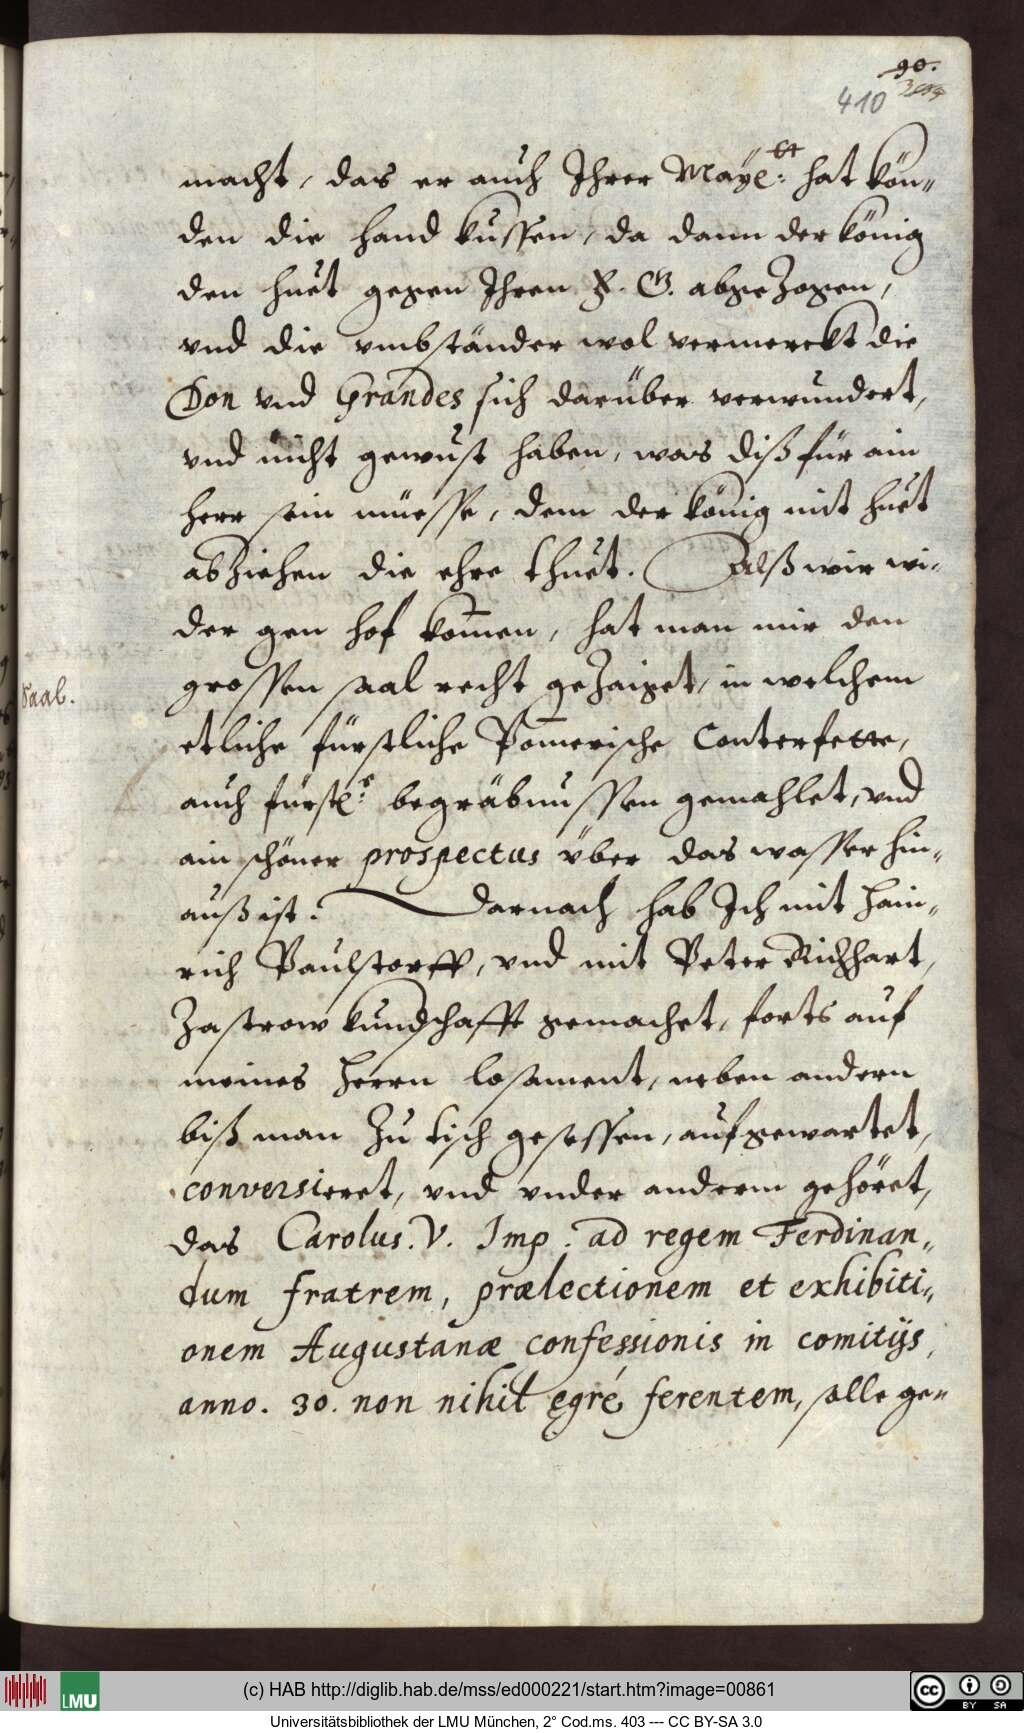 90.
410
macht, das er auch Ihrer Mäyẽ: tt hat kön„
den die hand küssen, da dann der könig
den huet gegen Ihren F. G. abgezogen,
vnd die vmbständer wol vermerckt die
Don vnd Grandes sich darüber verwundert,
vnd nicht gewust haben, was diß für ain
herr sein müesse, dem der könig mit huet
abziehen die ehre thuet. Alß wir wi„
der gen hof kom̄en, hat man mir den
Saal.
grossen saal recht gezaiget, in welchem
etliche fürstliche Pom̄erische Conterfette,
auch fürstl: e begräbnussen gemahlet, vnd
ain schöner prospectus über das wasser hin„
auß ist. Darnach hab Ich mit Hain„
rich Paulstorff, vnd mit Peter Richhart,
Zastrow kundschafft gemachet, forts auf
meines Herrn losament, neben andern
biß man zu tisch gesessen, aufgewartet,
conversieret, vnd vnder anderm gehöret,
das Carolus. V. Imp. ad regem Ferdinan„
dum fratrem, prælectionem et exhibiti„
onem Augustanæ confessionis in comitijs,
anno. 30. non nihil egré ferentem, solle ge„
(c) HAB http://diglib.hab.de/mss/ed000221/start.htm?image=00861
LMU
cc BY SA
Universitätsbibliothek der LMU München, 2° Cod.ms. 403 --- CC BY-SA 3.0